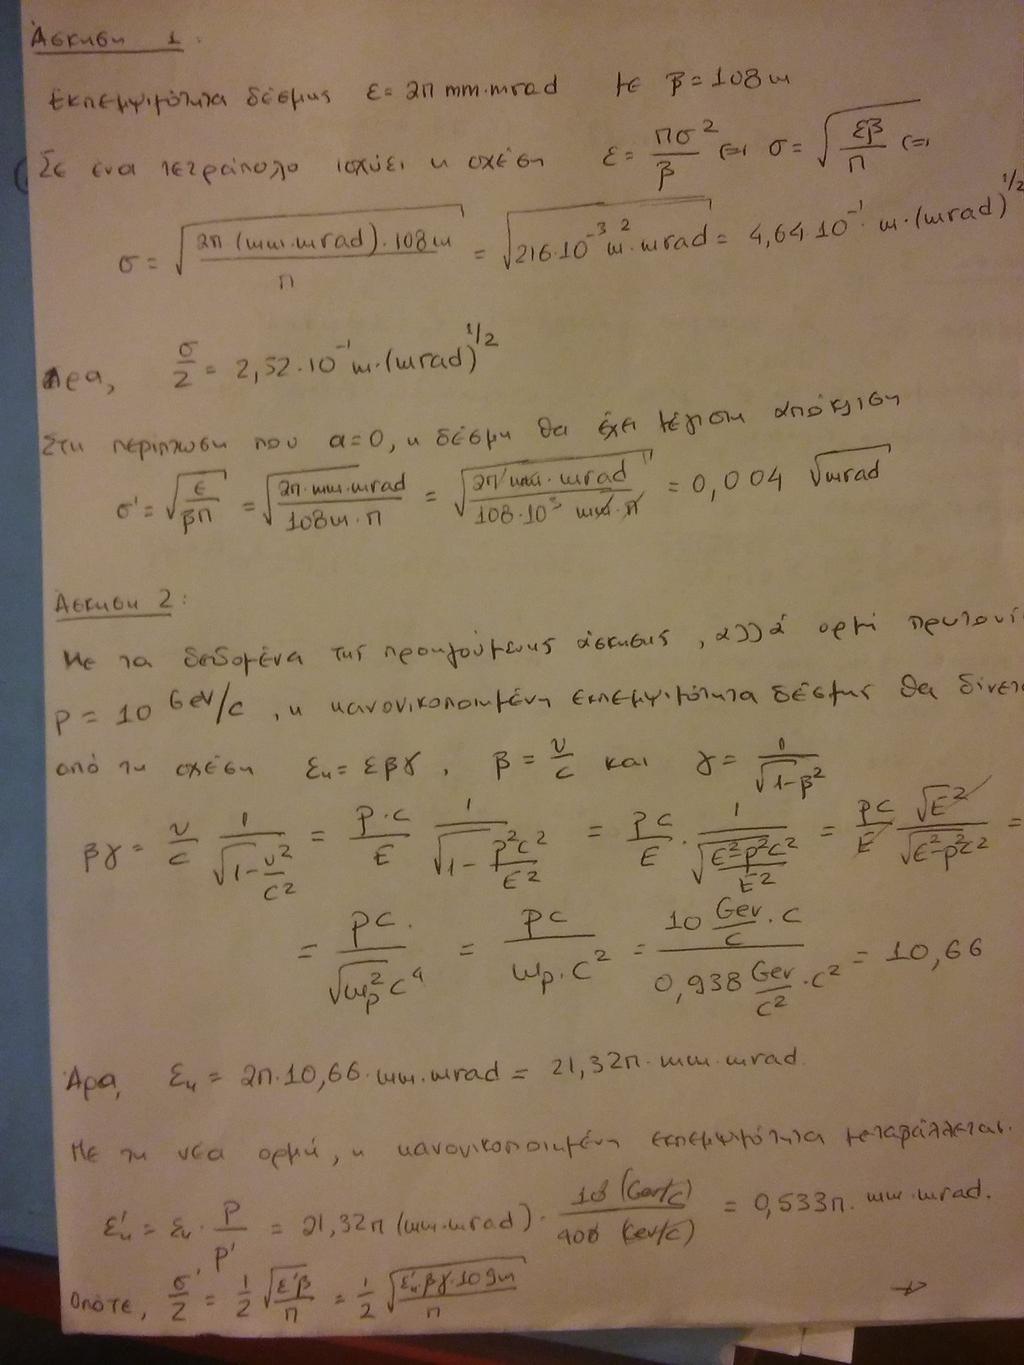 Άσκηση 1:
Εκπεμψιμότητα δέσμης ε = 2π mm·mrad με β = 108m
Σε ένα τετράπολο ισχύει η σχέση ε = πσ²/β ⇔ σ = √(εβ/π) ⇔
σ = √(2π (mm·mrad)·108m/π) = √(216·10⁻³ m²·mrad) = 4,64·10⁻¹ m·(mrad)^1/2
Άρα, σ/2 = 2,32·10⁻¹ m·(mrad)^1/2
Στη περίπτωση που α=0, η δέσμη θα έχει μέγιστη απόκλιση
σ' = √(ε/βπ) = √(2π·mm·mrad/108m·π) = √(2π mm·mrad/108·10³ mm·π) = 0,004 √mrad
Άσκηση 2:
Με τα δεδομένα της προηγούμενης άσκησης, αλλά ορμή
p = 10 GeV/c, η κανονικοποιημένη εκπεμψιμότητα δέσμης θα
από τη σχέση εη = εβγ, β = υ/c και γ = 1/√(1-β²)
βγ = υ/c 1/√(1-υ²/c²) = p·c/E 1/√(1-p²c²/E²) = pc/E · 1/√((E²-p²c²)/E²) = pc/E √E²/√(E²-p²c²) =
= pc/√(mp²c⁴) = pc/(mp·c²) = (10 GeV/c · c)/(0,938 GeV/c² ·c²) = 10,66
Άρα, εη = 2π·10,66·mm·mrad = 21,32π·mm·mrad.
Με τη νέα ορμή, η κανονικοποιημένη εκπεμψιμότητα μεταβάλλεται.
ε'η = εη · p/p' = 21,32π (mm·mrad) · 10 (GeV/c)/400 (GeV/c) = 0,533π· mm·mrad.
Οπότε, σ'/2 = 1/2 √(ε'β/π) = 1/2 √(ε'η βγ·109m/π) →